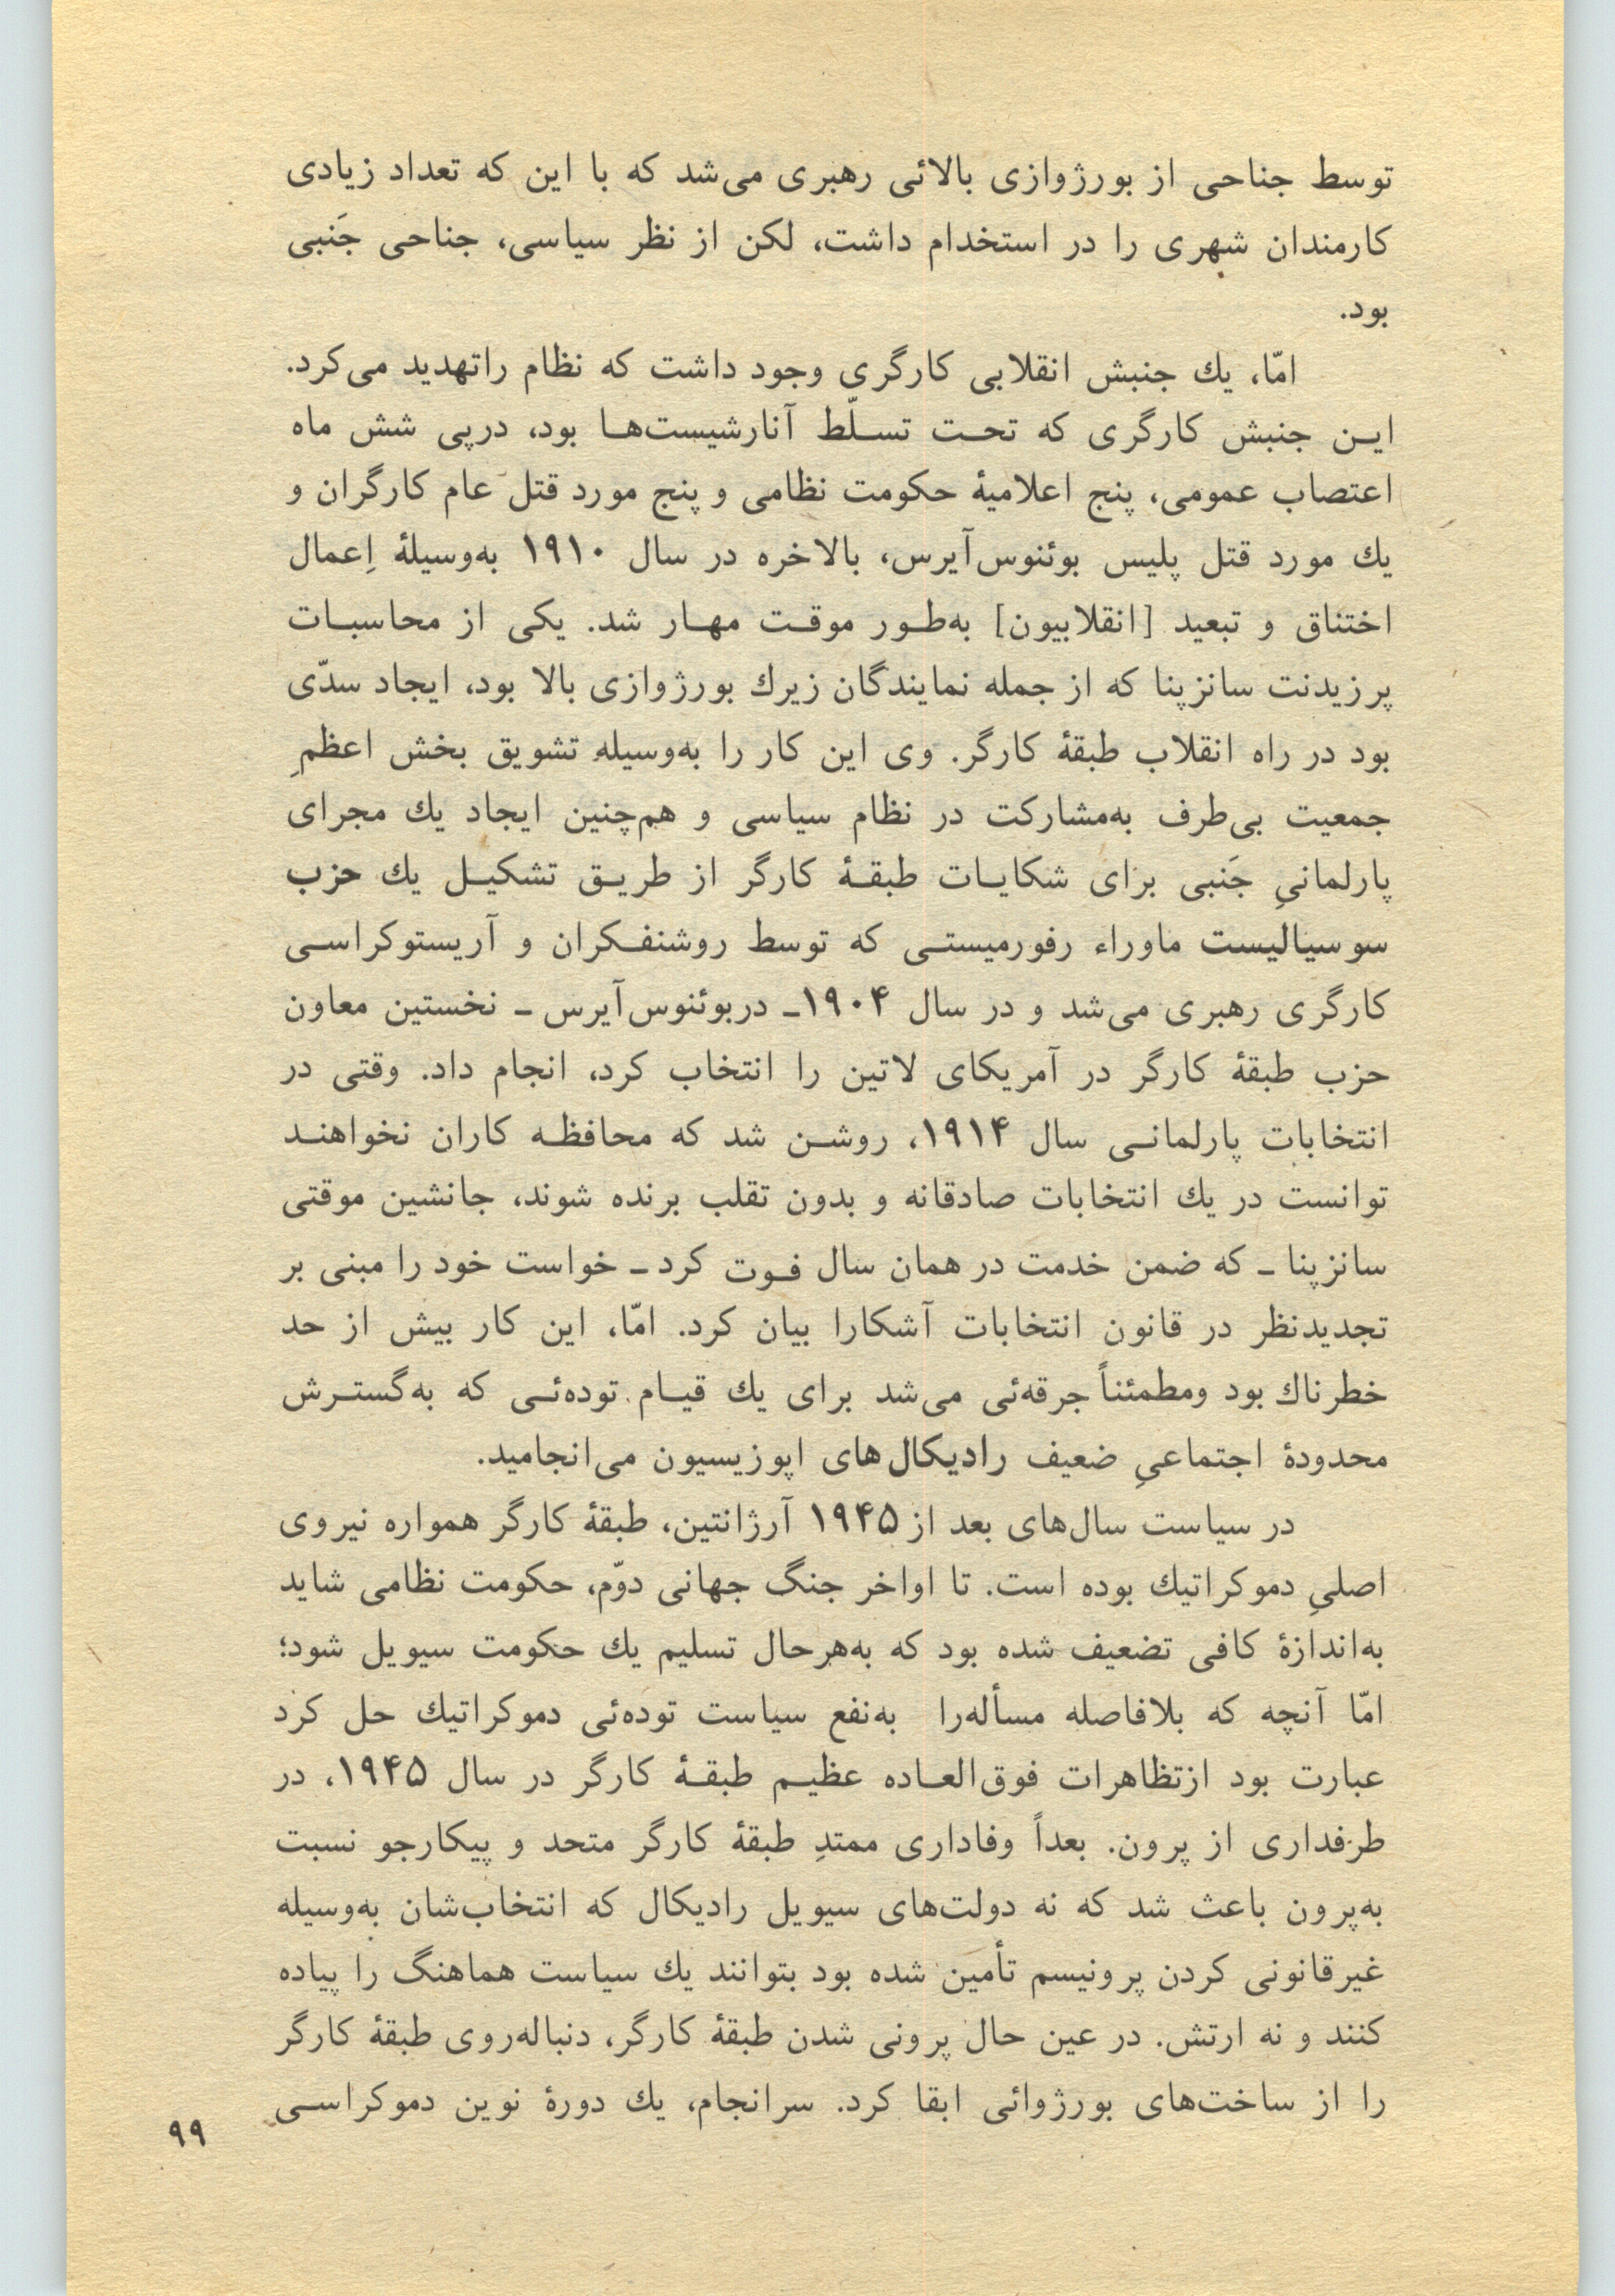 توسط جناحی از بورژوازی بالائی رهبری می‌شد که با این که تعداد زیادی
کارمندان شهری را در استخدام داشت، لکن از نظر سیاسی، جناحی جَنبی
بود.
امّا، یك جنبش انقلابی کارگری وجود داشت که نظام راتهدید می‌کرد.
ایـن جنبش کارگری که تحـت تسـلّط آنارشیست‌هـا بود، درپی شش ماه
اعتصاب عمومی، پنج اعلامیۀ حکومت نظامی و پنج مورد قتل عام کارگران و
یك مورد قتل پلیس بوئنوس‌آیرس، بالاخره در سال ۱۹۱۰ به‌وسیلۀ اِعمال
اختناق و تبعید [انقلابیون] به‌طـور موقـت مهـار شد. یکی از محاسبـات
پرزیدنت سانزپنا که از جمله نمایندگان زیرك بورژوازی بالا بود، ایجاد سدّی
بود در راه انقلاب طبقۀ کارگر. وی این کار را به‌وسیله تشویق بخش اعظمِ
جمعیت بی‌طرف به‌مشارکت در نظام سیاسی و هم‌چنین ایجاد یك مجرای
پارلمانیِ جَنبی برای شکایـات طبقـۀ کارگر از طریـق تشکیـل یك حزب
سوسیالیست ماوراء رفورمیستـی که توسط روشنفـکران و آریستوکراسـی
کارگری رهبری می‌شد و در سال ۱۹۰۴ـ دربوئنوس‌آیرس ـ نخستین معاون
حزب طبقۀ کارگر در آمریکای لاتین را انتخاب کرد، انجام داد. وقتی در
انتخابات پارلمانـی سال ۱۹۱۴، روشـن شد که محافظـه کاران نخواهنـد
توانست در یك انتخابات صادقانه و بدون تقلب برنده شوند، جانشین موقتی
سانزپنا ـ که ضمن خدمت در همان سال فـوت کرد ـ خواست خود را مبنی بر
تجدیدنظر در قانون انتخابات آشکارا بیان کرد. امّا، این کار بیش از حد
خطرناك بود ومطمئناً جرقه‌ئی می‌شد برای یك قیـام توده‌ئـی که به‌گستـرش
محدودۀ اجتماعیِ ضعیف رادیکال‌های اپوزیسیون می‌انجامید.
در سیاست سال‌های بعد از ۱۹۴۵ آرژانتین، طبقۀ کارگر همواره نیروی
اصلیِ دموکراتیك بوده است. تا اواخر جنگ جهانی دوّم، حکومت نظامی شاید
به‌اندازۀ کافی تضعیف شده بود که به‌هرحال تسلیم یك حکومت سیویل شود؛
امّا آنچه که بلافاصله مسأله‌را به‌نفع سیاست توده‌ئی دموکراتیك حل کرد
عبارت بود ازتظاهرات فوق‌العـاده عظیـم طبقـۀ کارگر در سال ۱۹۴۵، در
طرفداری از پرون. بعداً وفاداری ممتدِ طبقۀ کارگر متحد و پیکارجو نسبت
به‌پرون باعث شد که نه دولت‌های سیویل رادیکال که انتخاب‌شان به‌وسیله
غیرقانونی کردن پرونیسم تأمین شده بود بتوانند یك سیاست هماهنگ را پیاده
کنند و نه ارتش. در عین حال پرونی شدن طبقۀ کارگر، دنباله‌روی طبقۀ کارگر
را از ساخت‌های بورژوائی ابقا کرد. سرانجام، یك دورۀ نوین دموکراسـی
۹۹